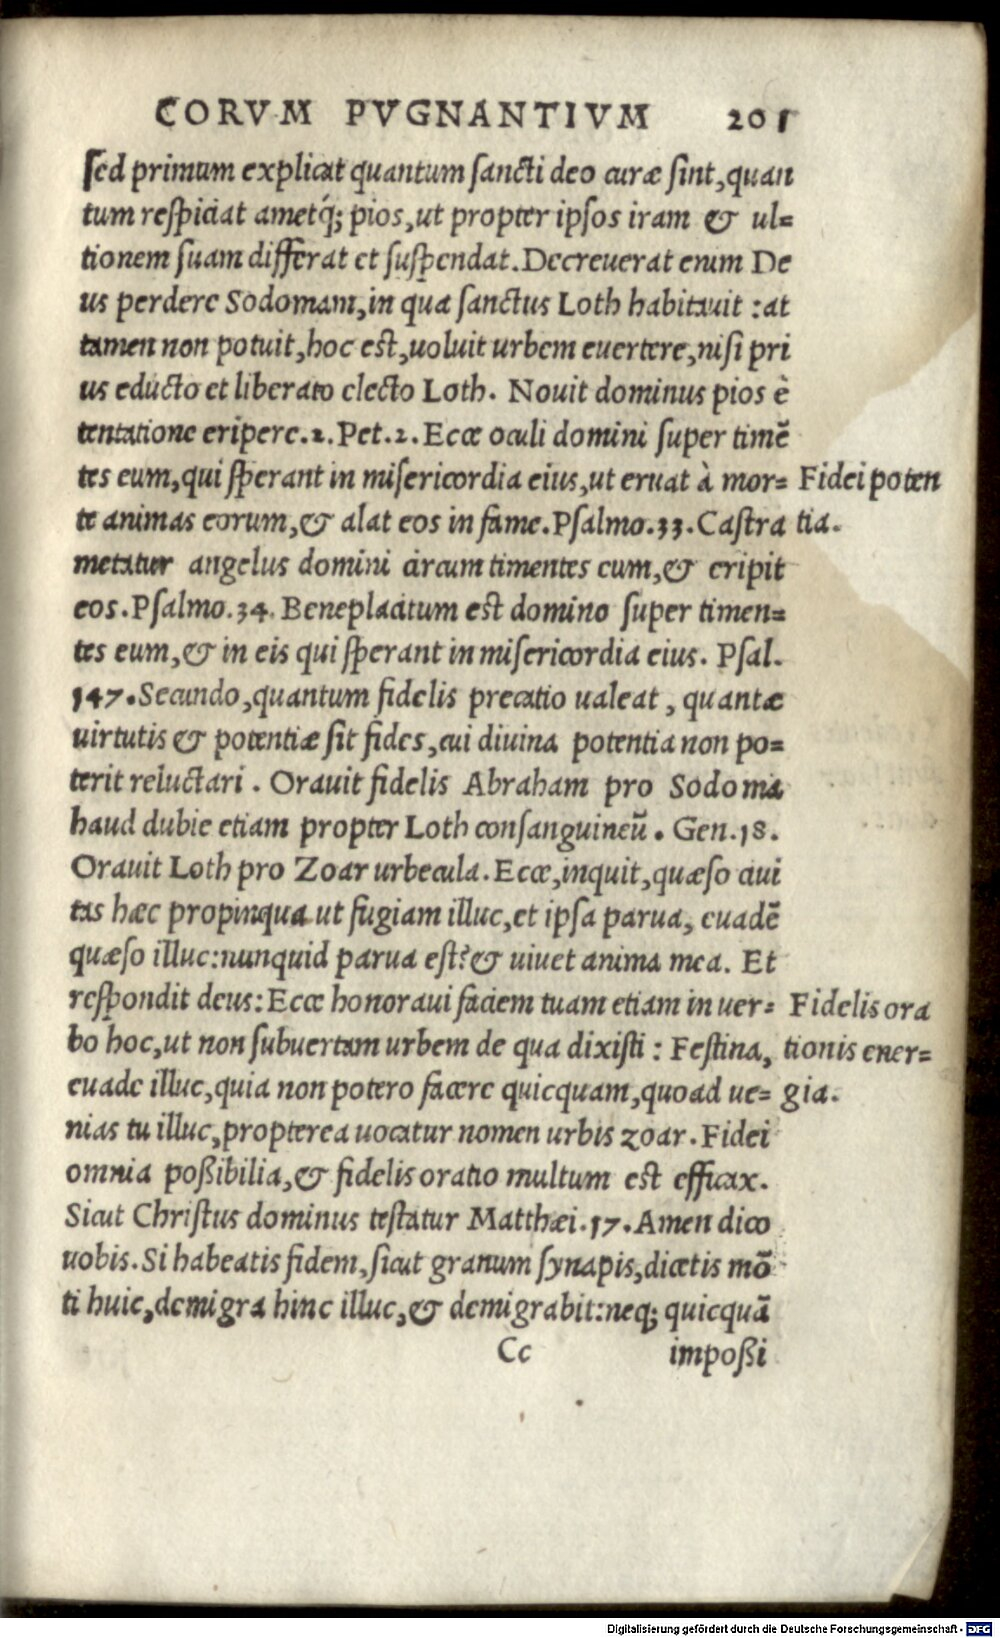 CORVM PVGNANTIVM 201
sed primum explicat quantum sancti deo curæ sint, quan
tum respiciat ametq́; pios, ut propter ipsos iram & ul=
tionem suam differat et suspendat. Decreuerat enim De
us perdere Sodomam, in qua sanctus Loth habitauit : at
tamen non potuit, hoc est, uoluit urbem euertere, nisi pri
us educto et liberato electo Loth. Nouit dominus pios è
tentatione eripere. 2. Pet. 2. Ecce oculi domini super timē
tes eum, qui sperant in misericordia eius, ut eruat à mor= Fidei poten
te animas eorum, & alat eos in fame. Psalmo. 33. Castra tia.
metatur angelus domini circum timentes eum, & eripit
eos. Psalmo. 34. Beneplacitum est domino super timen=
tes eum, & in eis qui sperant in misericordia eius. Psal.
147. Secundo, quantum fidelis precatio ualeat, quantæ
uirtutis & potentiæ sit fides, cui diuina potentia non po=
terit reluctari. Orauit fidelis Abraham pro Sodoma
haud dubie etiam propter Loth consanguineū. Gen. 18.
Orauit Loth pro Zoar urbecula. Ecce, inquit, quæso ciui
tas hæc propinqua ut fugiam illuc, et ipsa parua, euadē
quæso illuc: nunquid parua est? & uiuet anima mea. Et
respondit deus: Ecce honoraui faciem tuam etiam in uer= Fidelis ora
bo hoc, ut non subuertam urbem de qua dixisti : Festina, tionis ener=
euade illuc, quia non potero facere quicquam, quoad ue= gia.
nias tu illuc, propterea uocatur nomen urbis zoar. Fidei
omnia poßibilia, & fidelis oratio multum est efficax.
Sicut Christus dominus testatur Matthæi. 17. Amen dico
uobis. Si habeatis fidem, sicut granum synapis, dicetis mō
ti huic, demigra hinc illuc, & demigrabit: neq; quicquā
Cc impoßi
Digitalisierung gefördert durch die Deutsche Forschungsgemeinschaft - DFG